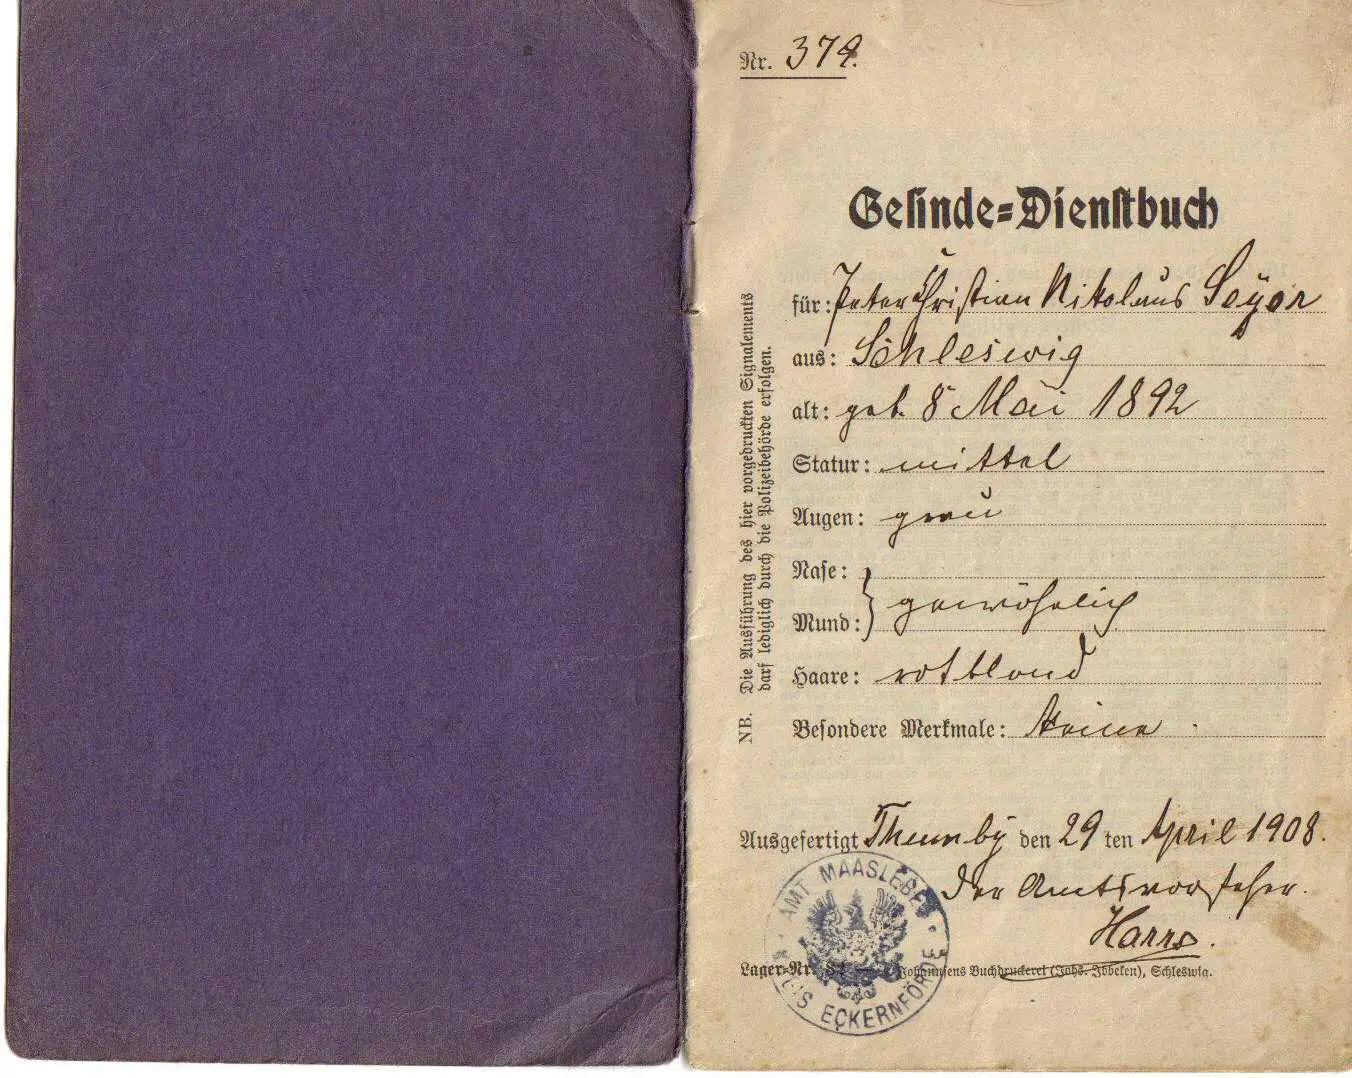 Nr. 379.
Gesinde=Dienstbuch
für: Peter Christian Nikolaus
aus: Schleswig
alt: geb. 8 Mai 1892
Statur: mittel
Augen: grau
Nase:
Mund: } gewöhnlich
Haare: rotblond
Besondere Merkmale: Keine.
NB. Die Ausführung des hier vorgedruckten Signalements
darf lediglich durch die Polizeibehörde erfolgen.
Ausgefertigt Thumby den 29 ten April 1908.
Der Amtsvorsteher.
AMT MAASLEBEN
KREIS ECKERNFÖRDE
Lager-Nr. Johannsens Buchdruckerei (Johs. Ibbeken), Schleswig.